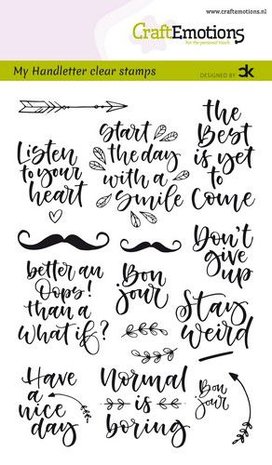 www.craftemotions.nl
CraftEmotions
for the personal touch
My Handletter clear stamps
DESIGNED BY CK
Listen
to your
heart
Start
the day
with a
smile
the
Best
is yet
to
Come
Don't
give
up
better an
Oops!
than a
what if?
Bon
jour
Stay
weird
Have
a
nice
day
Normal
is
boring
Bon
jour